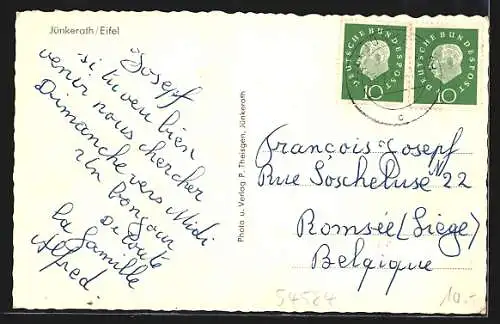 Jünkerath/Eifel
Josepf
si tu veu bien
venir nous chercher
Dimanche vers Midi
un bonjour
De toute
la famille
Alfred
Photo u. Verlag P. Theisgen, Jünkerath
DEUTSCHE BUNDESPOST
10
DEUTSCHE BUNDESPOST
10
c
François Josepf
Rue 22
Romsée (Liège)
Belgique
54584
10.-